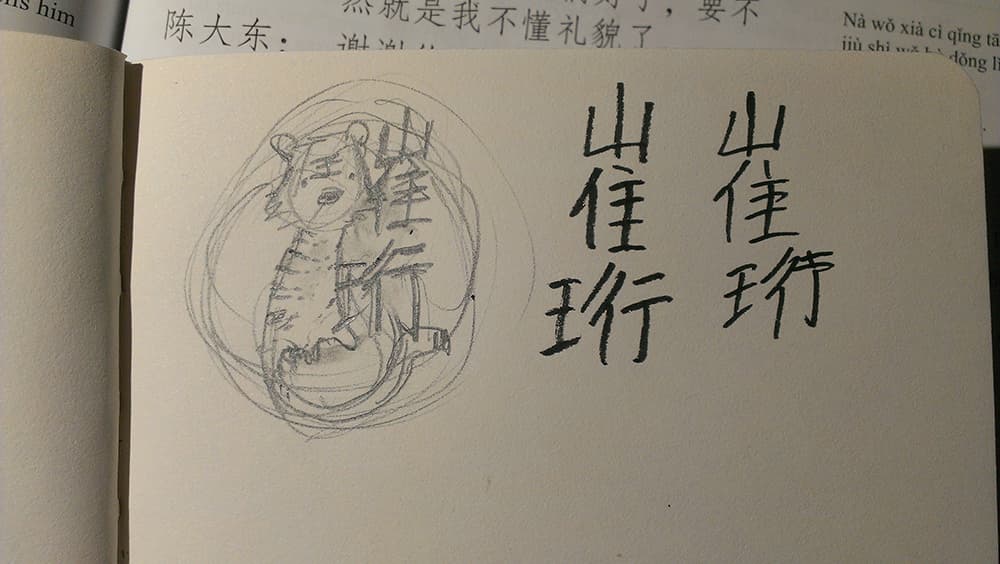 ns him
了，要不
然就是我不懂礼貌了
陈大东：
谢谢
Nà wǒ xià cì qǐng tā
jiù shì wǒ bù dǒng lǐ
崔珩
崔珩
崔珩